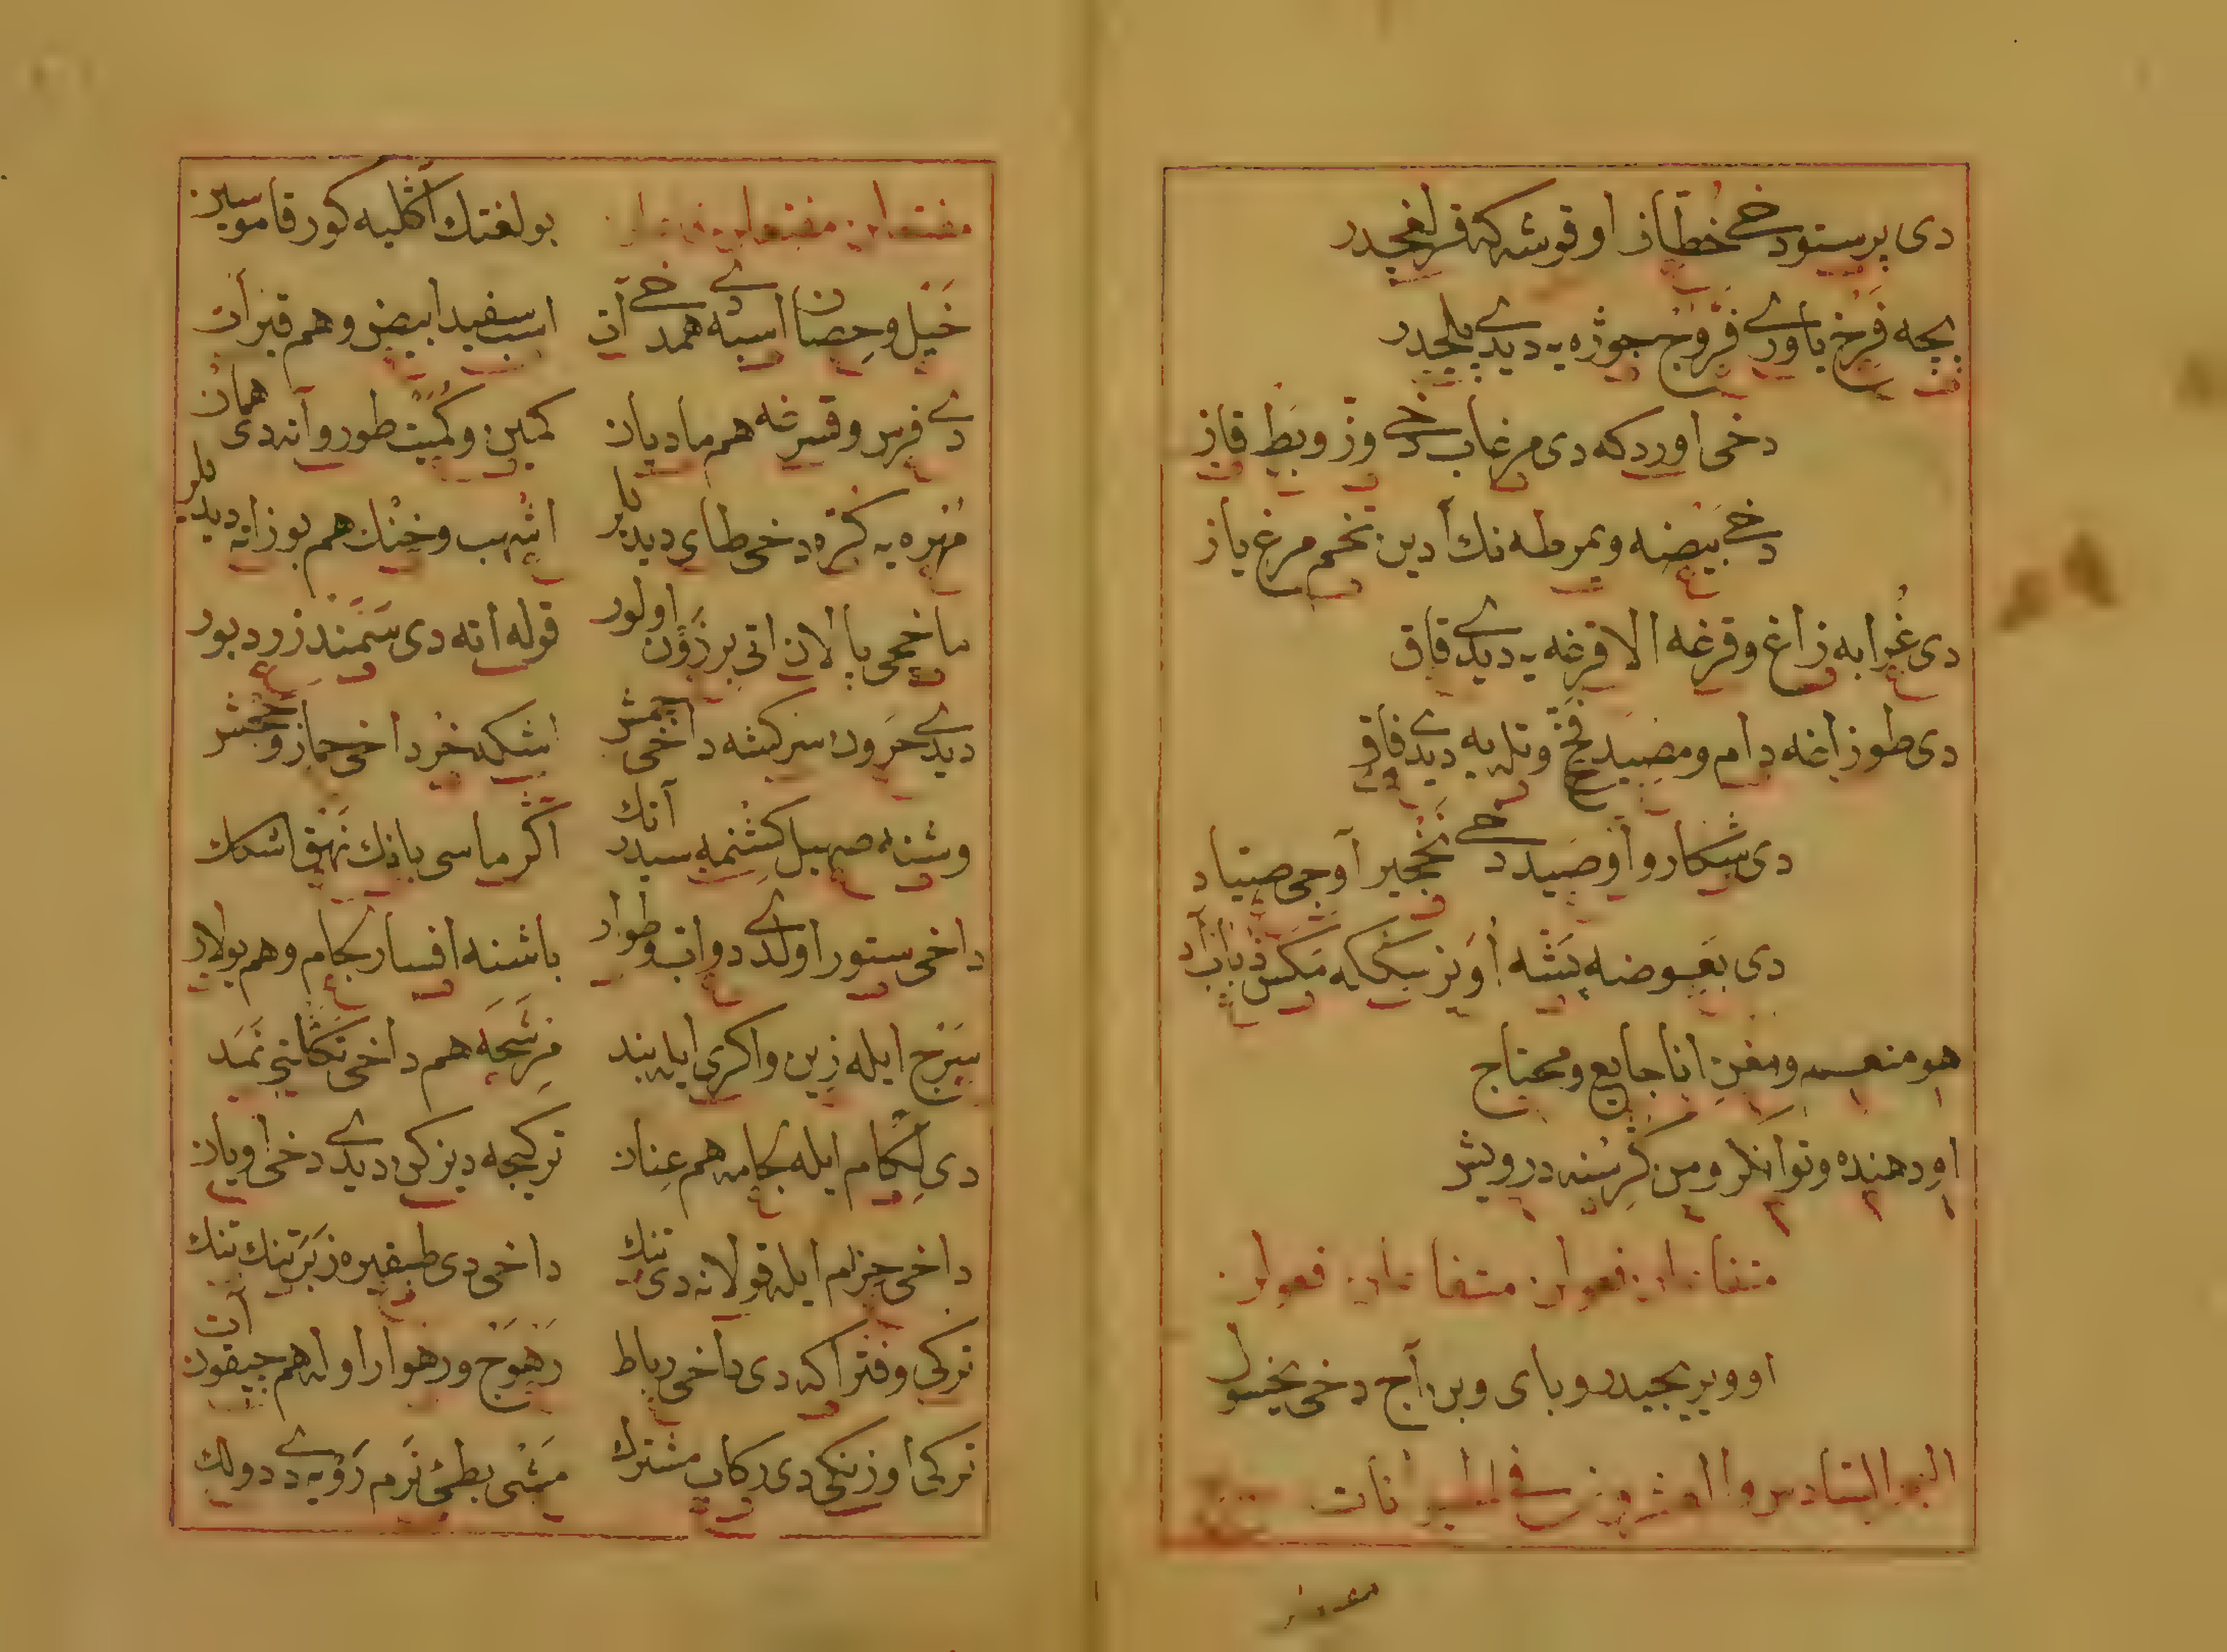 دی پرستو دخے خطّاز او قوشه که قرلغجدر
بچه فَرخ یاورے فَرّوج جوژه یه دیدے پلجدر
دخی اوردکه دی مرغاب دخے وزّ و بَطّ قاز
دخے بَیضه و یمرطه نك آدین تخم مرغ یاز
دی غُرابه زاغ و قرغه الا قرغه یه دیدے قاق
دی طوزاغه دام و مصیَد فَخّ و تله یه دیدے فاق
دی شکار و آو صَید دخے نَخجیر آوجی صیّاد
دی بَعوضه پَشّه اُوَیز سککه مکس ذُباب آد
هو منعم و مغنِ انا جایع و محتاج
او دهنده و توانکر و من کُرسنه درویش
متفاعلن فعولن متفاعلن فعولن
او ویریجیدر و بای و بن آج دخی یخسول
البحر السّادس و العشرون فی الحیوانات
مفتعلن
مفتعلن مفتعلن فاعلن
بولغتك و آڭلیه کور قاموسین
خَیل و حِصان اسبه همدخے آن
اسب سفید ابیض و هم قیر آت
دے فرس و قسرغه هم مادیان
کمین و کُمَیت طورو آته دی همان
مُهره یه کرّه دخی طای دیدیلر
اشهب و خنك هم بوز اته دیدیلر
ماخچی پالان اتی برذَون اولور
قوله اته دی سَمَند زرد بور
دیدے حَرون سرکشه داخی جمش
اشکه خر داخی حمار و خمش
و شنه صهیل کشنمه سیدر آنك
اڭرماسی بانك نَهَق اشکك
داخی ستور اولدے دواب و طوار
باشنه افسار لجام و هم یولار
سَرج ایله زین و اکری ایله بند
مِرشَحَه هم داخی تکلتی نَمَد
دی لِکام ایله لجامه هم عِنان
ترکیجه دیزکن دیدے دخی اویان
داخی حزام ایله قولانه دی تنك
ترکی و فتراکه دی داخی رباط
رَهوَج و رهوار اوله هم جیقون آت
ترکی اوزنکی دی رکاب مشترك
مَشی بطیئ نرم رَویه دے دولك